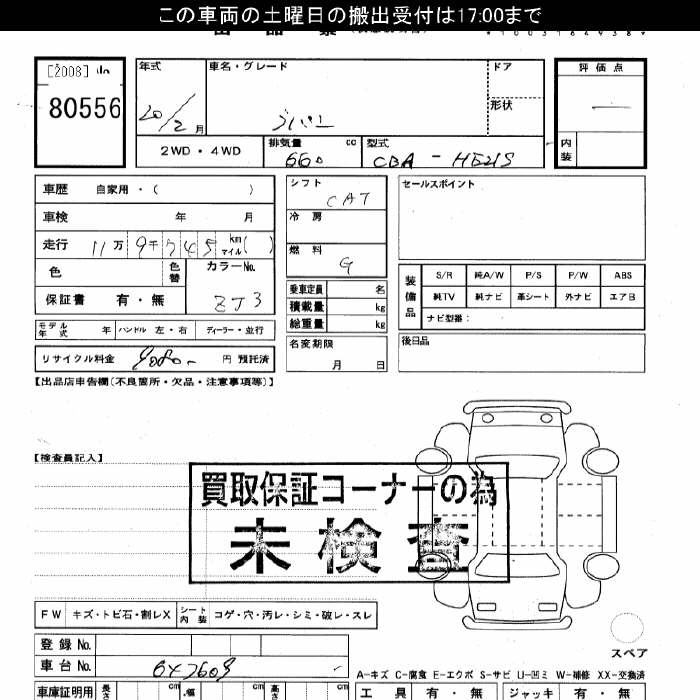 この車両の土曜日の搬出受付は17:00まで
[2008]
80556
年式
20/2月
車名・グレード
ドア
形状
評価点
内装
2WD・4WD
排気量 660 cc
型式 CBA - HE21S
車歴 自家用・( )
車検 年 月
走行 11万 9千 7 4 5 km マイル( )
色 色替
カラーNo. ZJ3
保証書 有・無
シフト CAT
冷房
燃料 G
乗車定員 名
積載量 kg
総重量 kg
名変期限 月 日
セールスポイント
装備品
S/R 純A/W P/S P/W ABS
純TV 純ナビ 革シート 外ナビ エアB
ナビ型番:
後日品
モデル年式 年 ハンドル 左・右 ディーラー・並行
リサイクル料金 円 預託済
【出品店申告欄(不良箇所・欠品・注意事項等)】
【検査員記入】
買取保証コーナーの為
未検査
FW キズ・トビ石・割レX シート内装 コゲ・穴・汚レ・シミ・破レ・スレ
スペア
登録No.
車台No.
A-キズ C-腐食 E-エクボ S-サビ U-凹ミ W-補修 XX-交換済
車庫証明用 長さ cm 幅 cm 高さ cm
工具 有・無 ジャッキ 有・無